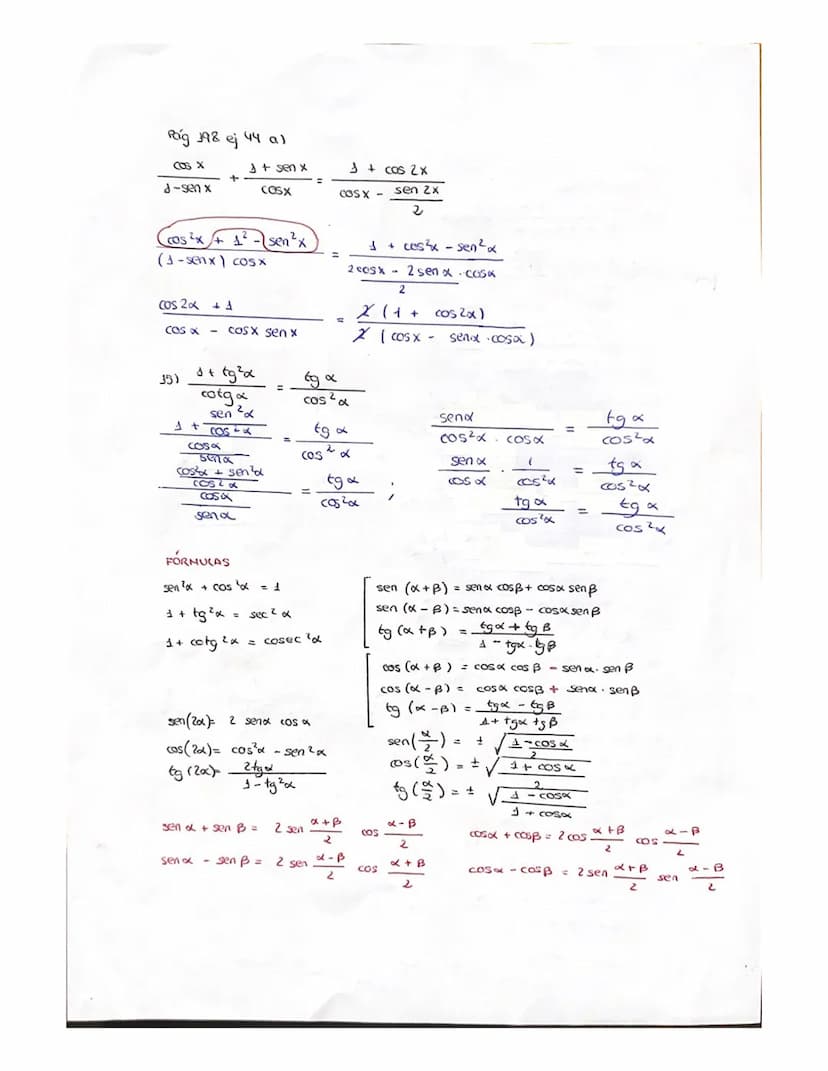 Pág 198 ej 44 a)
cos x / (1-sen x) + (1+ sen x) / cosx = (1 + cos 2x) / (cosx - (sen 2x)/2)
(cos²x + 1² - sen²x) / ((1-senx) cosx) = (1 + cos²x - sen²α) / ((2cosx - 2senα · cosα)/2)
(cos2α + 1) / (cosα - cosx senx) = 2(1 + cos2α) / 2(cosx - senα · cosα)
15) (1+ tg²α) / cotgα = tgα / cos²α
(1 + sen²α/cos²α) / (cosα/senα) = tgα / cos²α
((cos²α + sen²α)/cos²α) / (cosα/senα) = tgα / cos²α ;
senα / (cos²α · cosα) = tgα / cos²α
senα/cosα · 1/cos²α = tgα / cos²α
tgα / cos²α = tgα / cos²α
FÓRMULAS
sen²α + cos²α = 1
1 + tg²α = sec²α
1 + cotg²α = cosec²α
sen (α+β) = senα cosβ + cosα senβ
sen (α-β) = senα cosβ - cosα senβ
tg (α+β) = (tgα + tgβ) / (1 - tgα · tgβ)
cos (α+β) = cosα cosβ - senα · senβ
cos (α-β) = cosα cosβ + senα · senβ
tg (α-β) = (tgα - tgβ) / (1 + tgα tgβ)
sen(2α)= 2 senα cosα
cos(2α)= cos²α - sen²α
tg(2α)= 2tgα / (1 - tg²α)
sen(α/2) = ± √((1-cosα)/2)
cos(α/2) = ± √((1+cosα)/2)
tg(α/2) = ± √((1-cosα)/(1+cosα))
senα + senβ = 2 sen (α+β)/2 cos (α-β)/2
senα - senβ = 2 sen (α-β)/2 cos (α+β)/2
cosα + cosβ = 2cos (α+β)/2 cos (α-β)/2
cosα - cosβ = 2sen (α+β)/2 sen (α-β)/2